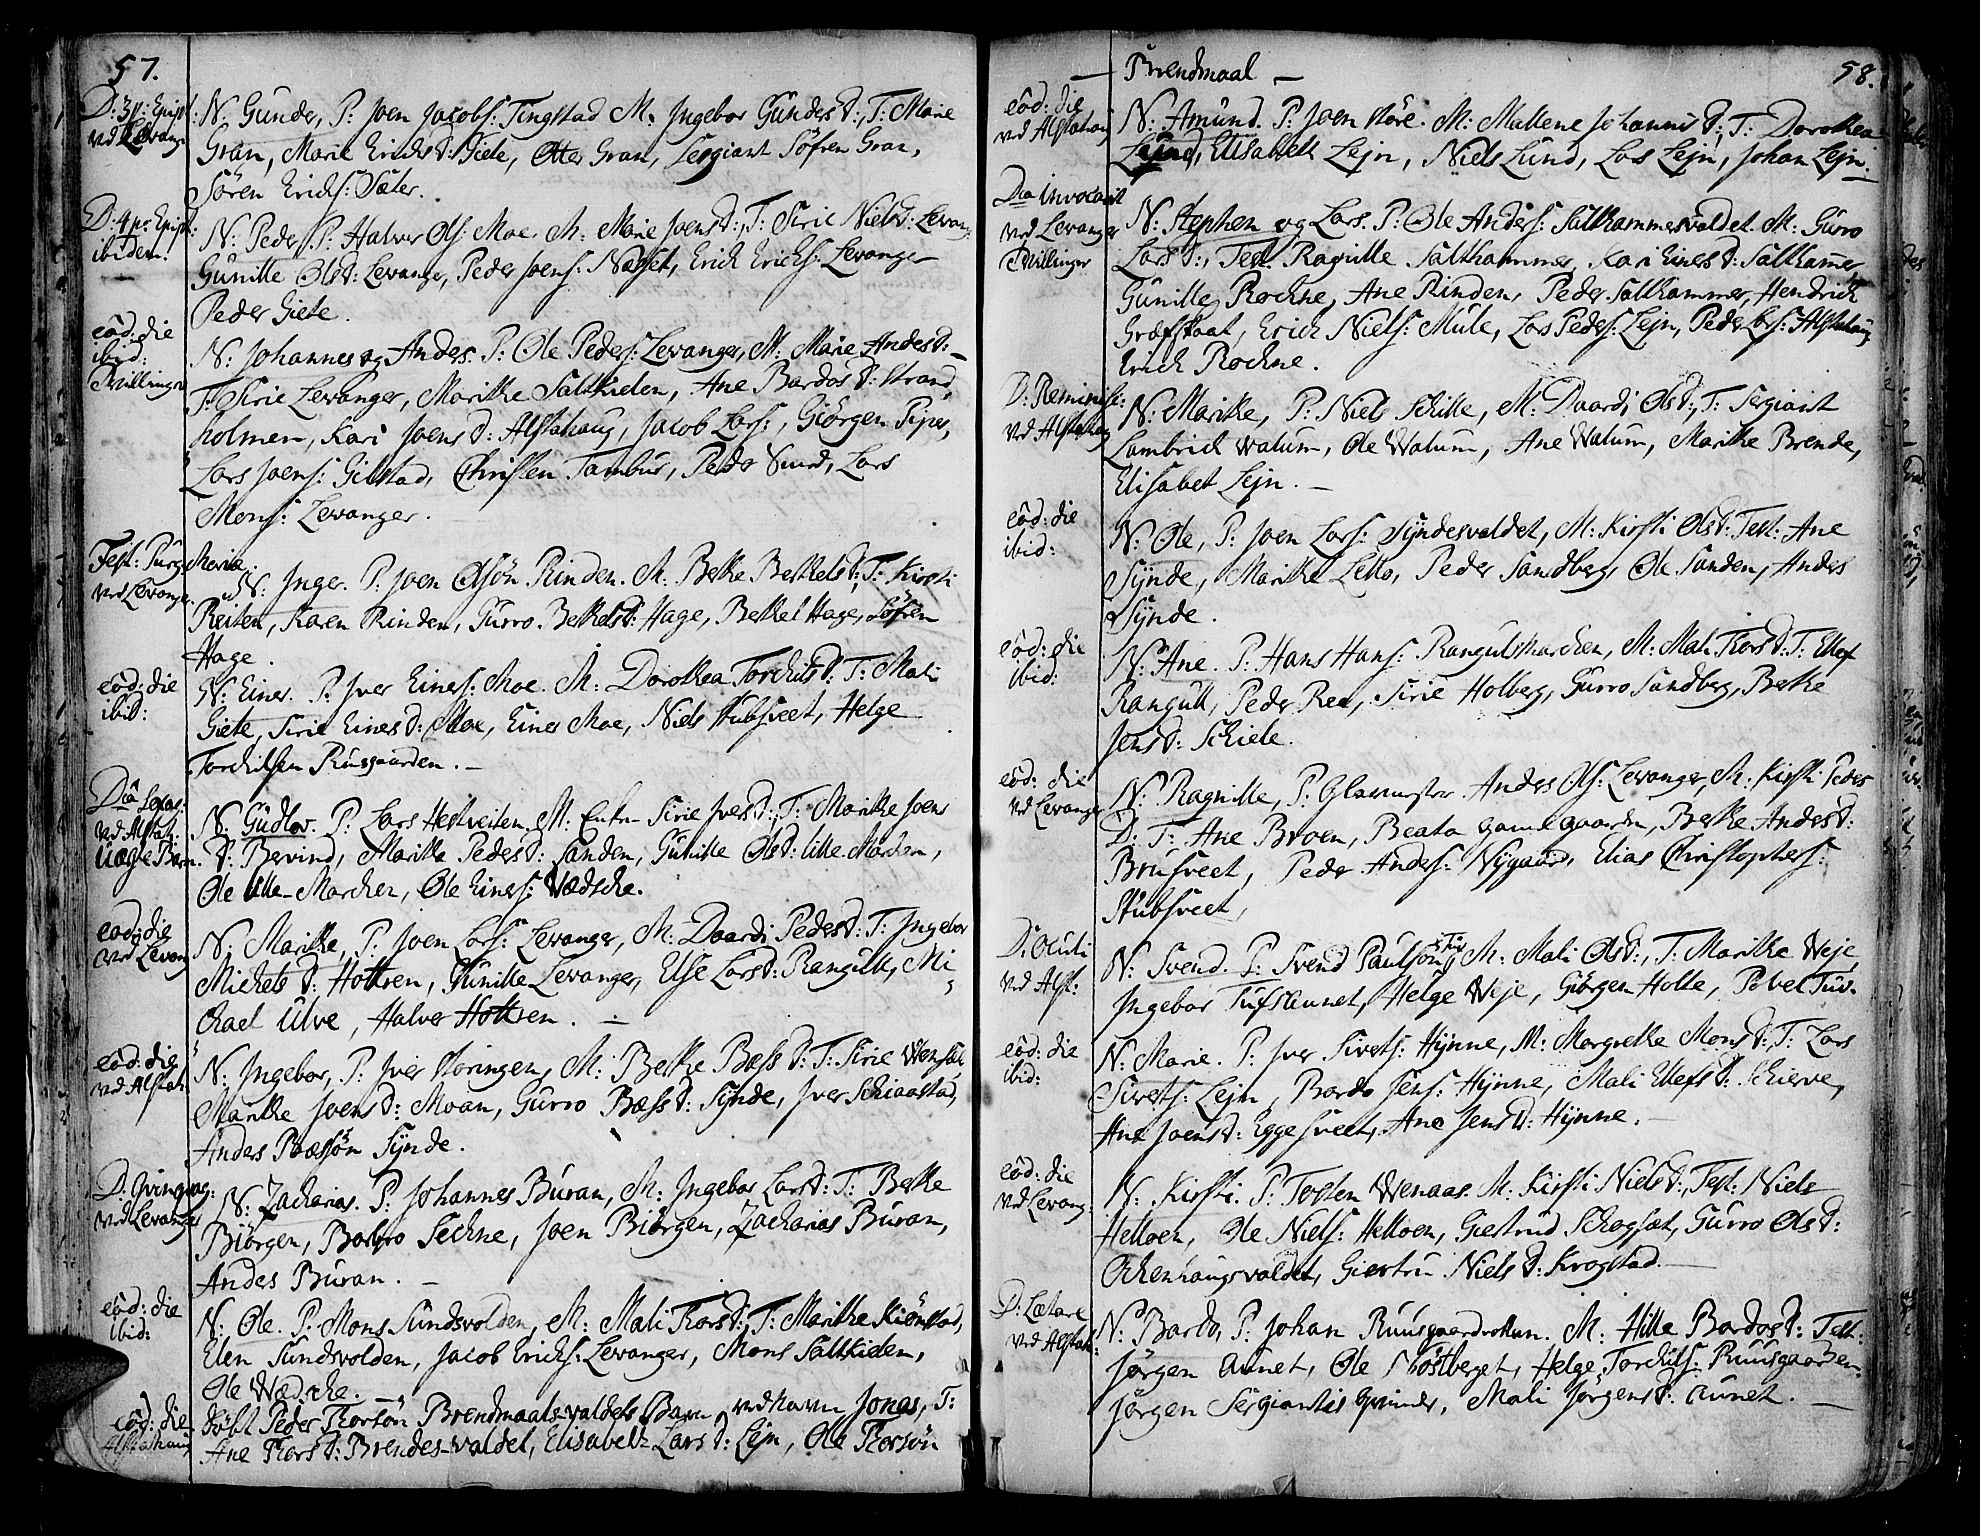 57.
D: 3 p: Epiph:
ved Levang:
N: Gunder, P: Joen Jacobs: Tingstad M: Ingebor Gunders d:, T: Marie
Gran, Marie Erichs d: Giete, Otter Gran, Sergiant Söfren Gran,
Sören Erichs: Sæter.
D. 4 p: Epiph:
ibidem.
N: Peder P: Halver Ols: Moe. M: Marie Joens d:, T: Sirie Niels d: Levang:
Gunille Ols d: Levange, Peder Joens: Nesset, Erich Erichs: Levange
Peder Giete.
eod: die
ibid:
Tvillinger
N: Johannes og Anders. P: Ole Peders: Levanger, M: Marie Anders d: -
T: Sirie Levanger, Marithe Saltkielen, Ane Bardos d: Strand
holmen, Kari Joens d: Alstahaug, Jacob Lars:, Giörgen Piper,
Lars Joens: Gilstad, Christen Tambur, Peder Smed, Lars
Mons: Levanger.
Fest: Purg: Mariæ.
ved Levange.
N: Inger. P: Joen Olsön Rinden. M: Berthe Berthels d:, T: Kirsti
Reiten, Karen Rinden, Gurro Berthels d: Hage, Berthel Hage, Söfren
Hage.
eod: die
ibid:
N: Einer. P: Iver Einers: Moe. M: Dorothea Torchilds d: T: Mali
Giete, Sirie Einers d: Moe, Einer Moe, Niels Stubsveet, Helge
Torchilsen Ruusgaarden. -
D: Sexag:
ved Alstah:
Uægte Barn.
N: Gudlov. P: Lars Hestveiten. M: Enk: Sirie Ivers d:, T: Marithe Joens
d: Bervind, Marithe Peders d: Sanden, Gunille Ols d: lille Marchen,
Ole lille-Marchen, Ole Einers: Wædsche.
eod: die
ved Levang
N: Marithe, P: Joen Lars: Levanger, M: Daardi Peders d: T: Ingebor
Michels d: Hottren, Gunille Levanger, Else Lars d: Rangull, Mi-
chael Ulve, Halver Hottren. -
eod: die
ved Alstah:
N: Ingebor, P: Iver Näringen, M: Berthe Bæss d: T: Sirie
Marithe Joens d: Moan, Gurro Bæss d: Synde, Iver Schiaastad,
Anders Bæssön Synde.
D: Qvinqvag:
ved Levanger
N: Zacharias. P: Johannes Buran, M: Ingebor Lars d: T: Berthe
Biörgen, Barbro Sechne, Joen Biörgen, Zacharias Buran,
Anders Buran. -
eod: die
ibid:
N: Ole. P: Mons Sundsvolden, M: Mali Thors d:, T: Marithe Kiönstad,
Elen Sundsvolden, Jacob Erichs: Levanger, Mons Saltkielen,
Ole Wædsche. -
eod: die
Alstahaug
döbt Peder Thorsön Brendmaals-valdets Barn ved navn Jonas, T:
Ane Thors d: Brendes-valdet, Elisabeth Lars d: Lejn, Ole Thorsön
58.
- Brendmaal -
eod: die
ved Alstahaug
N: Amund. P: Joen Store. M: Mallene Johannis d:, T: Dorothea
Lejn, Elisabeth Lejn, Niels Lund, Lars Lejn, Johan Lejn.
Dca Invocavit
ved Levanger
Tvillinger
N: Stephen og Lars. P: Ole Anders: Salthammersvaldet. M: Gurro
Lars d:, Test: Ragnille Salthammer, Kari Einers d: Salthamer
Gunille Rochne, Ane Rinden, Peder Salthammer, Hendrich
Græfskaat, Erich Niels: Mule, Lars Peders: Lejn, Peder Lars: Alstahaug
Erich Rochne.
D: Reminisc:
ved Alstahaug
N: Marithe, P: Niels Schille, M: Daardi Ols d:, T: Sergiant
Lambrich Walum, Ole Walum, Ane Walum, Marithe Brende,
Elisabet Lejn. -
eod: die
ibid:
N: Ole, P: Joen Lars: Syndesvaldet, M: Kirsti Ols d: Test: Ane
Synde, Marithe Lello, Peder Sandberg, Ole Sanden, Anders
Synde.
eod: die
ibid:
N: Ane. P: Hans Hans: Rangulsmarchen, M: Mali Thors d: T: Ellef
Rangull, Peder Ree, Sirie Holberg, Gurro Sandberg, Berthe
Jens d: Schiele.
eod: die
ved Levanger
N: Ragnille, P: Glarmester Anders Ols: Levanger, M: Kirsti Peders
D: T: Ane Broen, Beata Gamelgaarden, Berthe Anders d:
Brusveet, Peder Anders: Nygaard, Elias Christophers:
Stubsveet,
D: Oculi
ved Alst:
N: Svend. P: Svend Paulsön M: Mali Ols d:, T: Marithe Weje,
Ingebor Tufsaunet, Helge Weje, Giörgen Holte, Povel Tuv.
eod: die
ibid:
N: Marie. P: Iver Siverts: Hynne, M: Margrethe Mons d: T: Lars
Siverts: Lejn, Bardo Jens: Hynne, Mali Ellefs d: Schierve,
Ane Joens d: Eggesveet, Ane Jens d: Hynne. -
eod: die
ved Levang:
N: Kirsti. P: Torsten Wenaas. M: Kirsti Niels d:, Test: Niels
Helloen, Ole Niels: Helloen, Giertrud Schogsæt, Gurro Ols d:
Ochenhaugsvaldet, Giertru Niels d: Krogstad. -
D: Lætare
ved Alstah:
N: Bardo, P: Johan Ruusgaardvollen. M: Hille Bardos d: Test:
Jörgen Aunet, Ole Röstberget, Helge Torchils: Ruusgaarden
Jörgen Sergiantis qvinder, Mali Jörgens d: Aunet. -